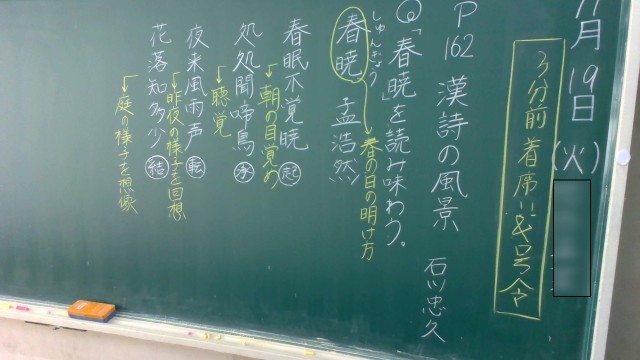 11月19日(火)
3分前着席&号令
P162 漢詩の風景 石川忠久
◎「春暁」を読み味わう。
しゅんぎょう
春暁 孟浩然
春の日の明け方
春眠不覚暁 起
朝の目覚め
処処聞啼鳥 承
聴覚
夜来風雨声 転
昨夜の様子を回想
花落知多少 結
庭の様子を想像